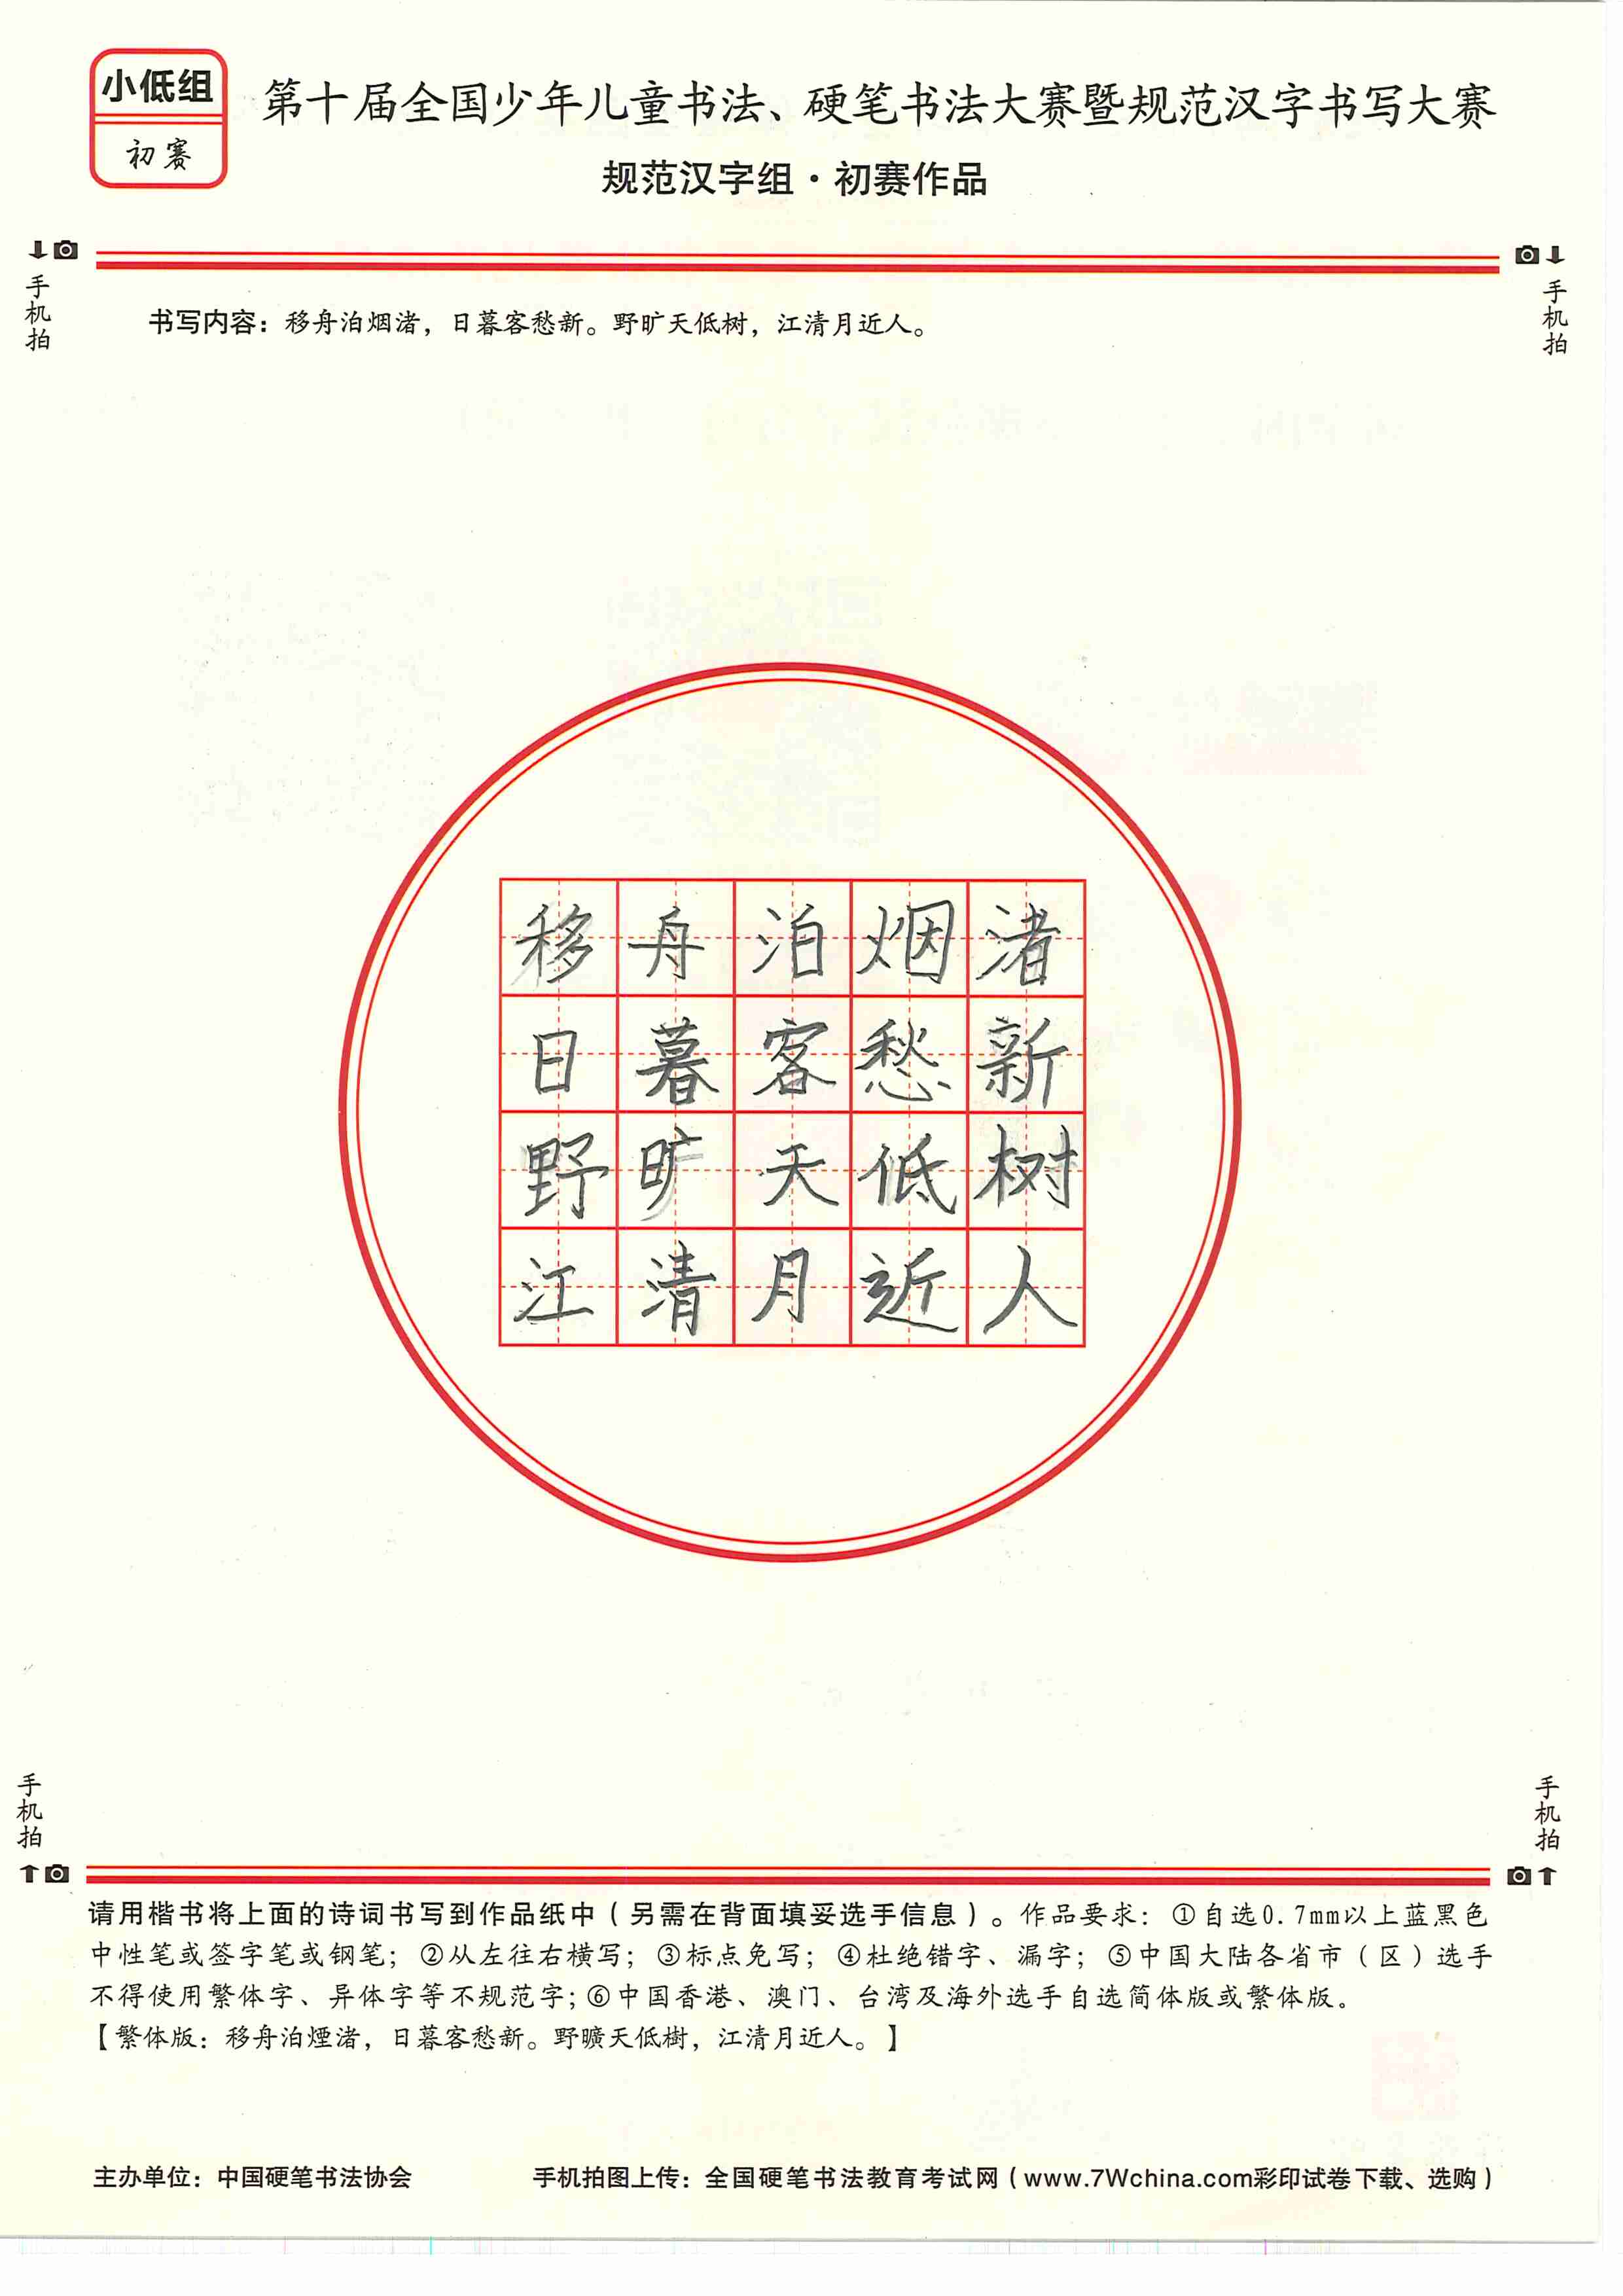 小低组
初赛
第十届全国少年儿童书法、硬笔书法大赛暨规范汉字书写大赛
规范汉字组·初赛作品
手机拍
手机拍
书写内容：移舟泊烟渚，日暮客愁新。野旷天低树，江清月近人。
移舟泊烟渚
日暮客愁新
野旷天低树
江清月近人
手机拍
手机拍
请用楷书将上面的诗词书写到作品纸中（另需在背面填妥选手信息）。作品要求：①自选0.7mm以上蓝黑色
中性笔或签字笔或钢笔；②从左往右横写；③标点免写；④杜绝错字、漏字；⑤中国大陆各省市（区）选手
不得使用繁体字、异体字等不规范字；⑥中国香港、澳门、台湾及海外选手自选简体版或繁体版。
【繁体版：移舟泊煙渚，日暮客愁新。野曠天低樹，江清月近人。】
主办单位：中国硬笔书法协会
手机拍图上传：全国硬笔书法教育考试网（www.7Wchina.com彩印试卷下载、选购）